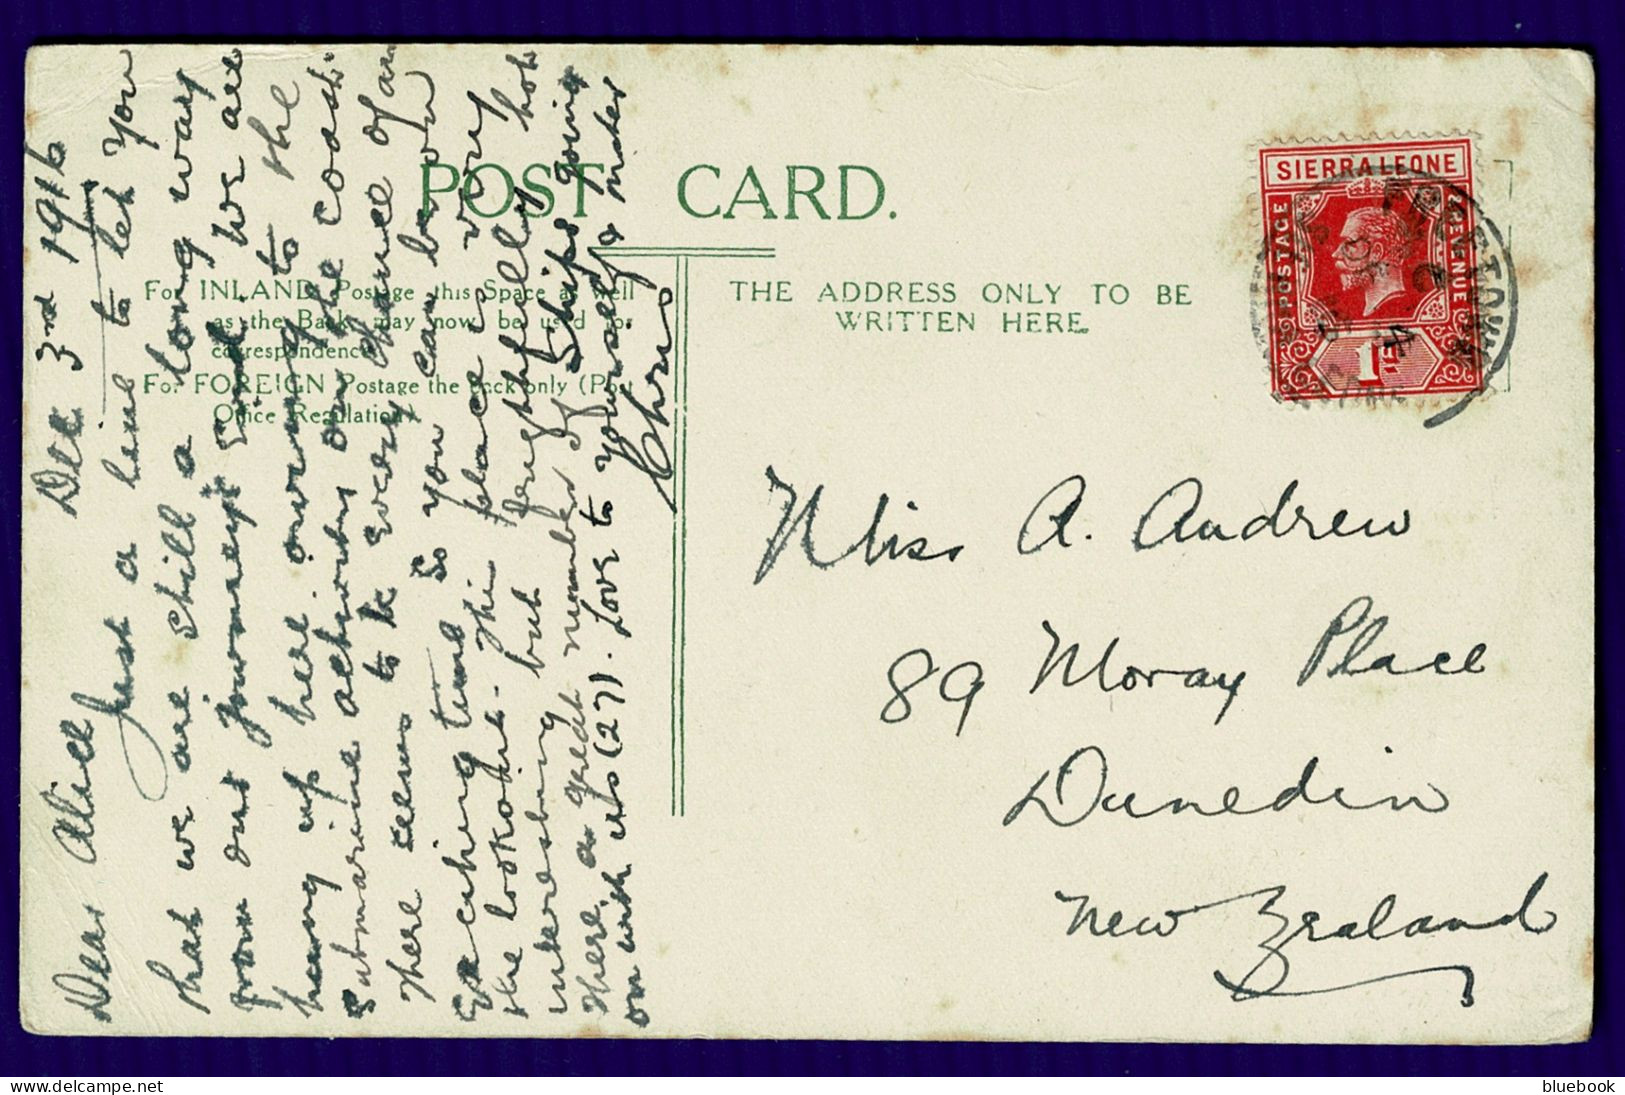 POST CARD.
For INLAND Postage this Space as well
as the Back may now be used for
correspondence.
For FOREIGN Postage the Back only (Post
Office Regulation).
THE ADDRESS ONLY TO BE
WRITTEN HERE.
SIERRA LEONE
POSTAGE
REVENUE
1d
FREETOWN
SIERRA LEONE
Dec 3rd 1916
Dear Alice
Just a line to let you
that we are still a long way
from our journeys End. We are
hung up here owing to the
Submarine activity on the coast
There seems to be every chance of an
Exciting time so you can be on
the lookout. This place is very
interesting but frightfully hot
There, a great number of Ships going
on with us (27). Love to yourself & Mater
Chris
Miss A. Andrew
89 Moray Place
Dunedin
New Zealand
bluebook